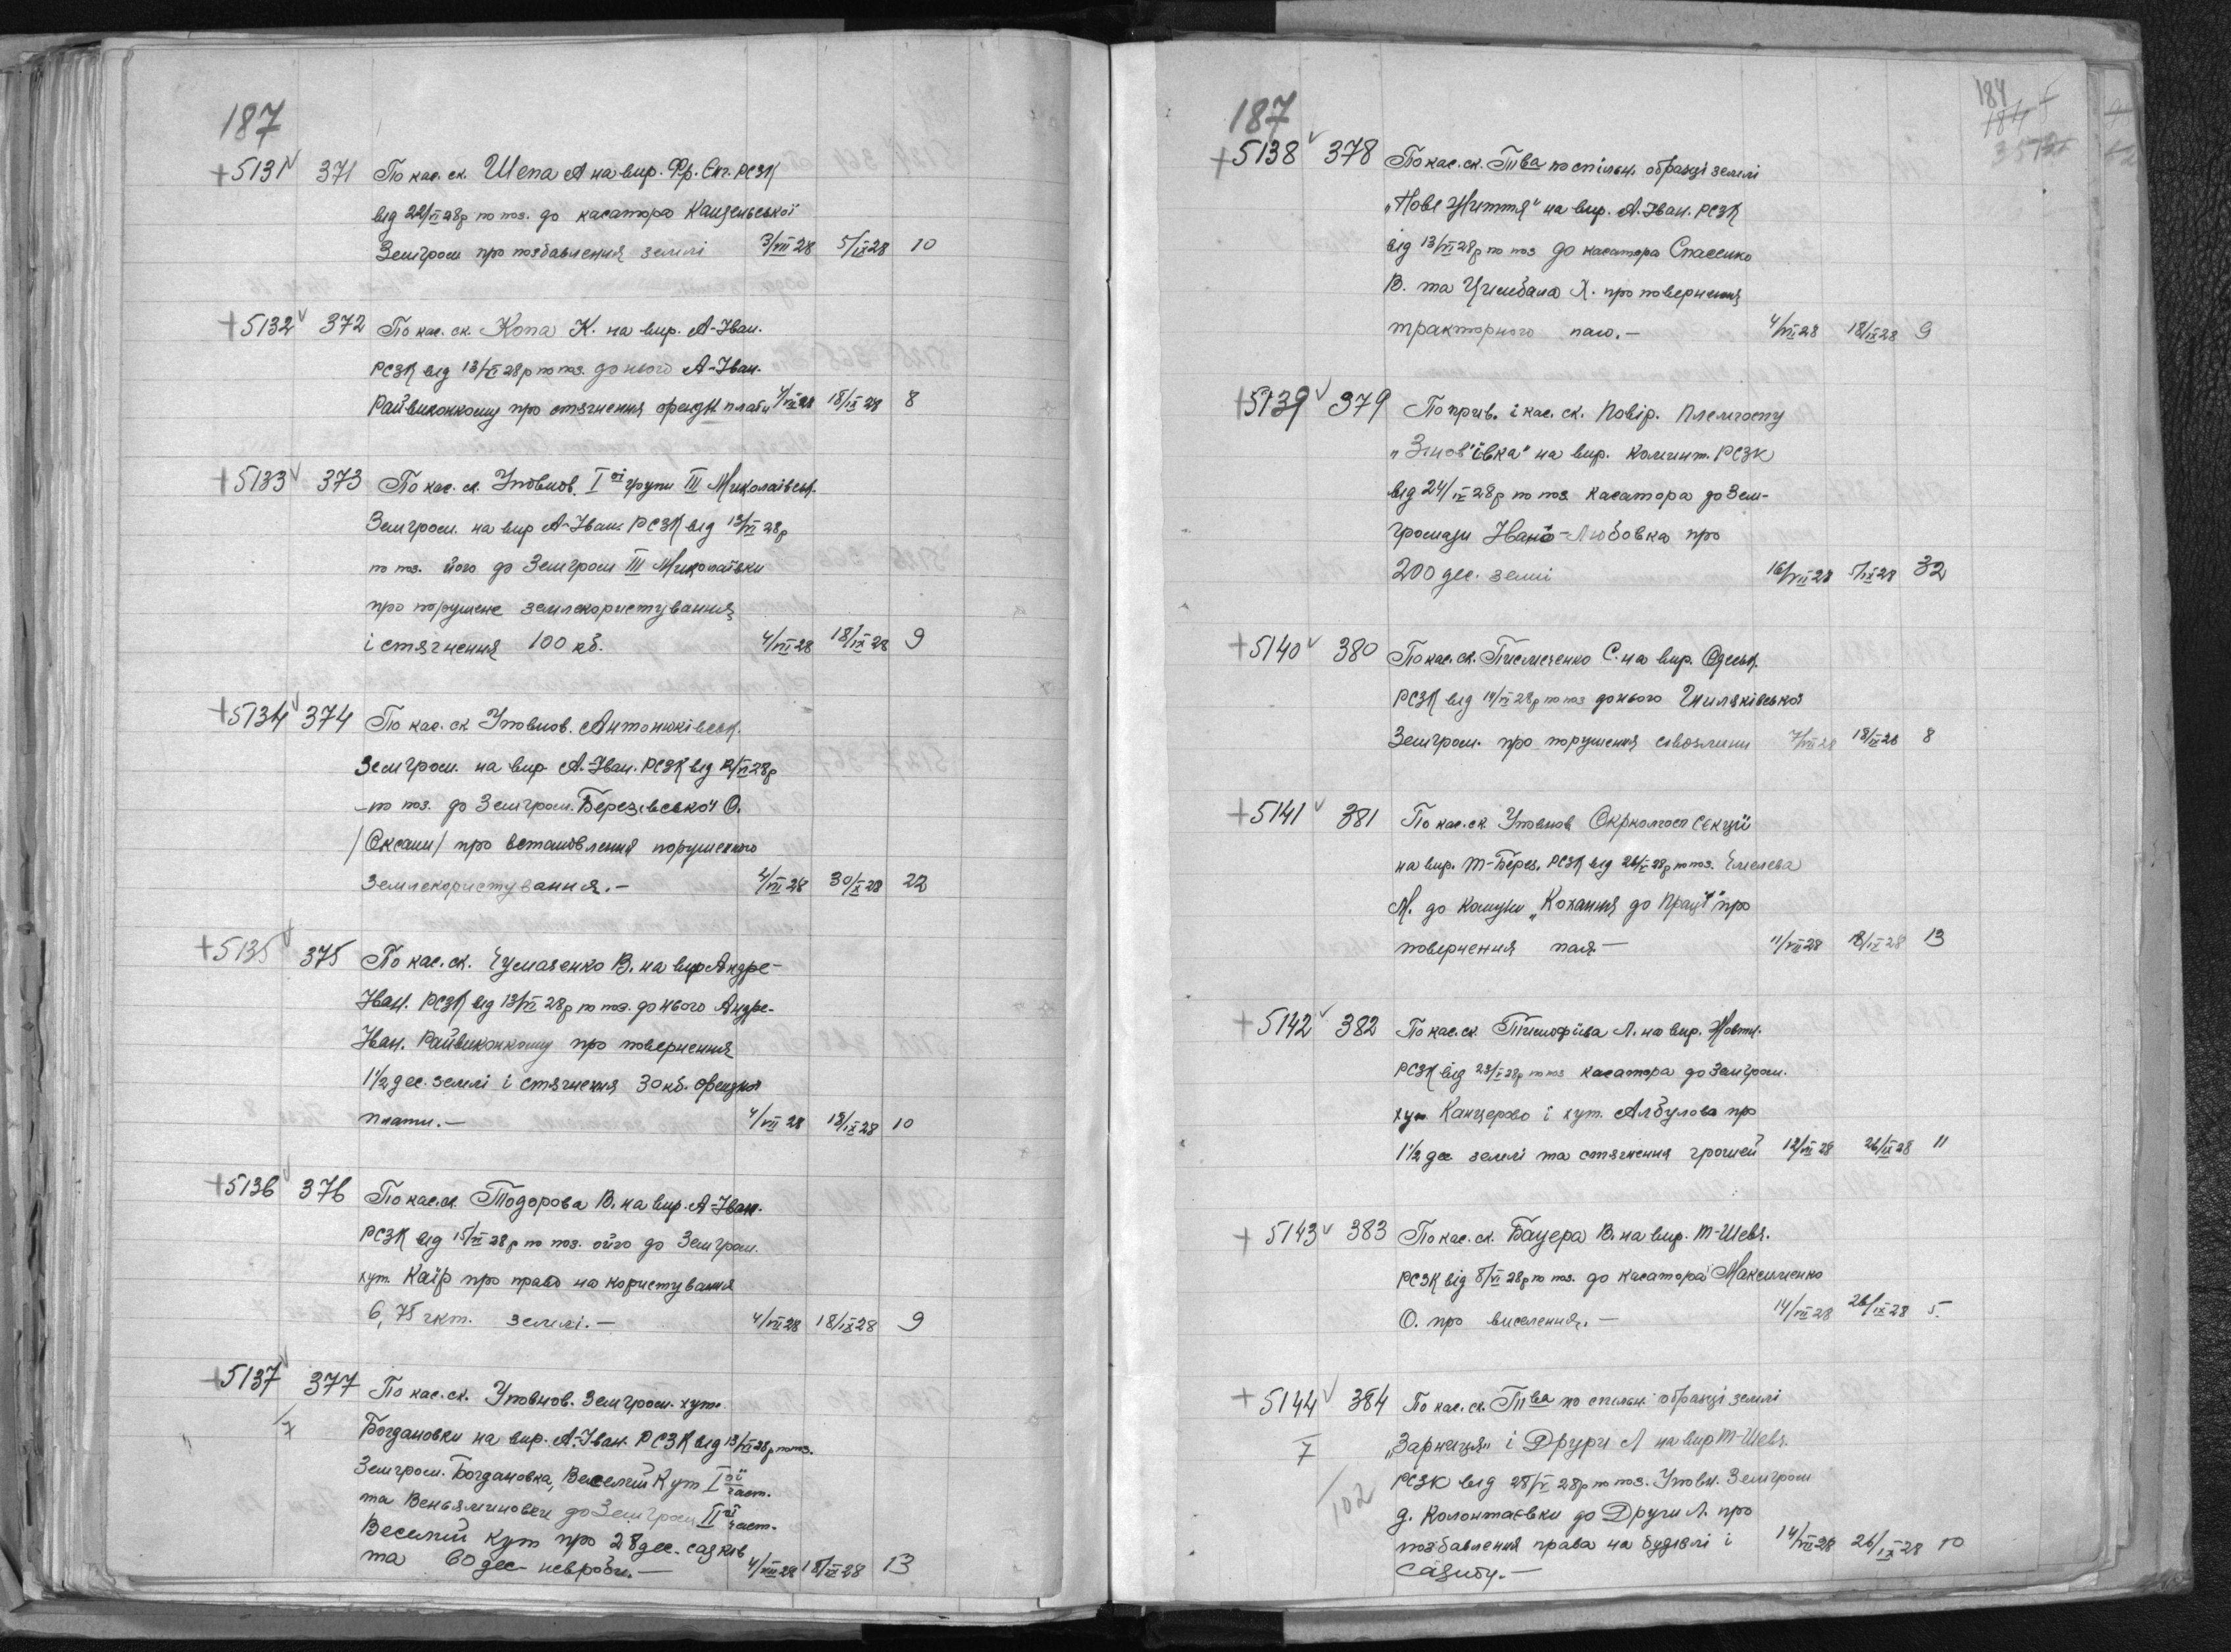 187
+5131 371 По кас. ск. Шепа А на вир. Фр. Євг. РСЗК
від 22/VI 28р по поз. до касатора Канцельської
Земгром про позбавлення землі 3/VII 28 5/IX 28 10
+5132 372 По кас. ск. Копа К. на вир. А-Іван.
РСЗК від 13/VI 28р по поз. до нього А-Іван.
Райвиконкому про стягнення оренд плати 4/VII 28 18/IX 28 8
+5133 373 По кас. ск. Уповнов. Iої групи III Миколаївськ.
Земгром. на вир А-Іван. РСЗК від 13/VI 28р
по поз. його до Земгром III Миколаївки
про порушене землекористування
і стягнення 100 кб. 4/VII 28 18/IX 28 9
+5134 374 По кас. ск Уповнов. Антонюківськ.
Земгром. на вир А-Іван. РСЗК від 12/VI 28р
по поз. до Земгром. Березівської О.
/Оксани/ про встановлення порушеного
землекористування.- 4/VII 28 30/X 28 22
+5135 375 По кас. ск. Чумаченко В. на вир Андре-
Іван. РСЗК від 13/VI 28р по поз. до нього Андре-
Іван. Райвиконкому про повернення
1½ дес. землі і стягнення 30 кб. орендної
плати.- 4/VII 28 18/IX 28 10
+5136 376 По кас. ск. Тодорова В. на вир. А-Іван.
РСЗК від 15/VI 28р по поз. його до Земгром.
хут. Каїр про право на користування
6,75 гкт. землі.- 4/VII 28 18/IX 28 9
+5137 377 По кас. ск. Уповнов. Земгром. хут.
Богдановки на вир. А.-Іван. РСЗК від 13/VI 28р по поз.
Земгром. Богдановка, Веселий Кут Iої част.
та Веньяминовки до Земгром IIої част.
Веселий Кут про 28 дес. садків
та 60 дес невроби.- 4/VII 28 18/IX 28 13
187
184
+5138 378 По кас. ск. Т-ва по спільн. обранці землі
„Нове Життя" на вир. А.Іван. РСЗК
від 13/VI 28р по поз до касатора Спасенко
В. та Цимбала Х. про повернення
тракторного паю.- 4/VII 28 18/IX 28 9
+5139 379 По прив. і кас. ск. Повір. Племгоспу
„Зінов'ївка" на вир. Комінт. РСЗК
від 24/IV 28р по поз касатора до Зем-
громади Івано-Любовка про
200 дес. землі 16/VII 28 5/IX 28 32
+5140 380 По кас. ск. Писмеченко С. на вир. Одеськ.
РСЗК від 14/VI 28р по поз до нього Гниляківської
Земгром. про порушення сівозміни 7/VII 28 18/IX 28 8
+5141 381 По кас. ск Уповнов Окрколгосп секції
на вир. Т-Берез. РСЗК від 26/VI 28р по поз. Емелева
М. до комуни „Кохання до Праці" про
повернення пая- 11/VII 28 18/IX 28 13
+5142 382 По кас. ск. Тимофіїва Л. на вир. Жовтн.
РСЗК від 23/V 28р по поз касатора до Земгром.
хут Канцерово і хут. Албулова про
1½ дес землі та стягнення грошей 12/VII 28 26/IX 28 11
+5143 383 По кас. ск. Бауера В. на вир. Т-Шевч.
РСЗК від 8/VI 28р по поз. до касатора Максименко
О. про виселення.- 14/VII 28 26/IX 28 5
+5144 384 По кас. ск. Т-ва по спільн. обранці землі
7 „Зарниця" і Други Л на вир Т-Шевч.
РСЗК від 28/IV 28р по поз. Уповн. Земгром
102 д. Колонтаєвки до Други Л. про
позбавлення права на будівлі і 14/VII 28 26/IX 28 10
садибу.-